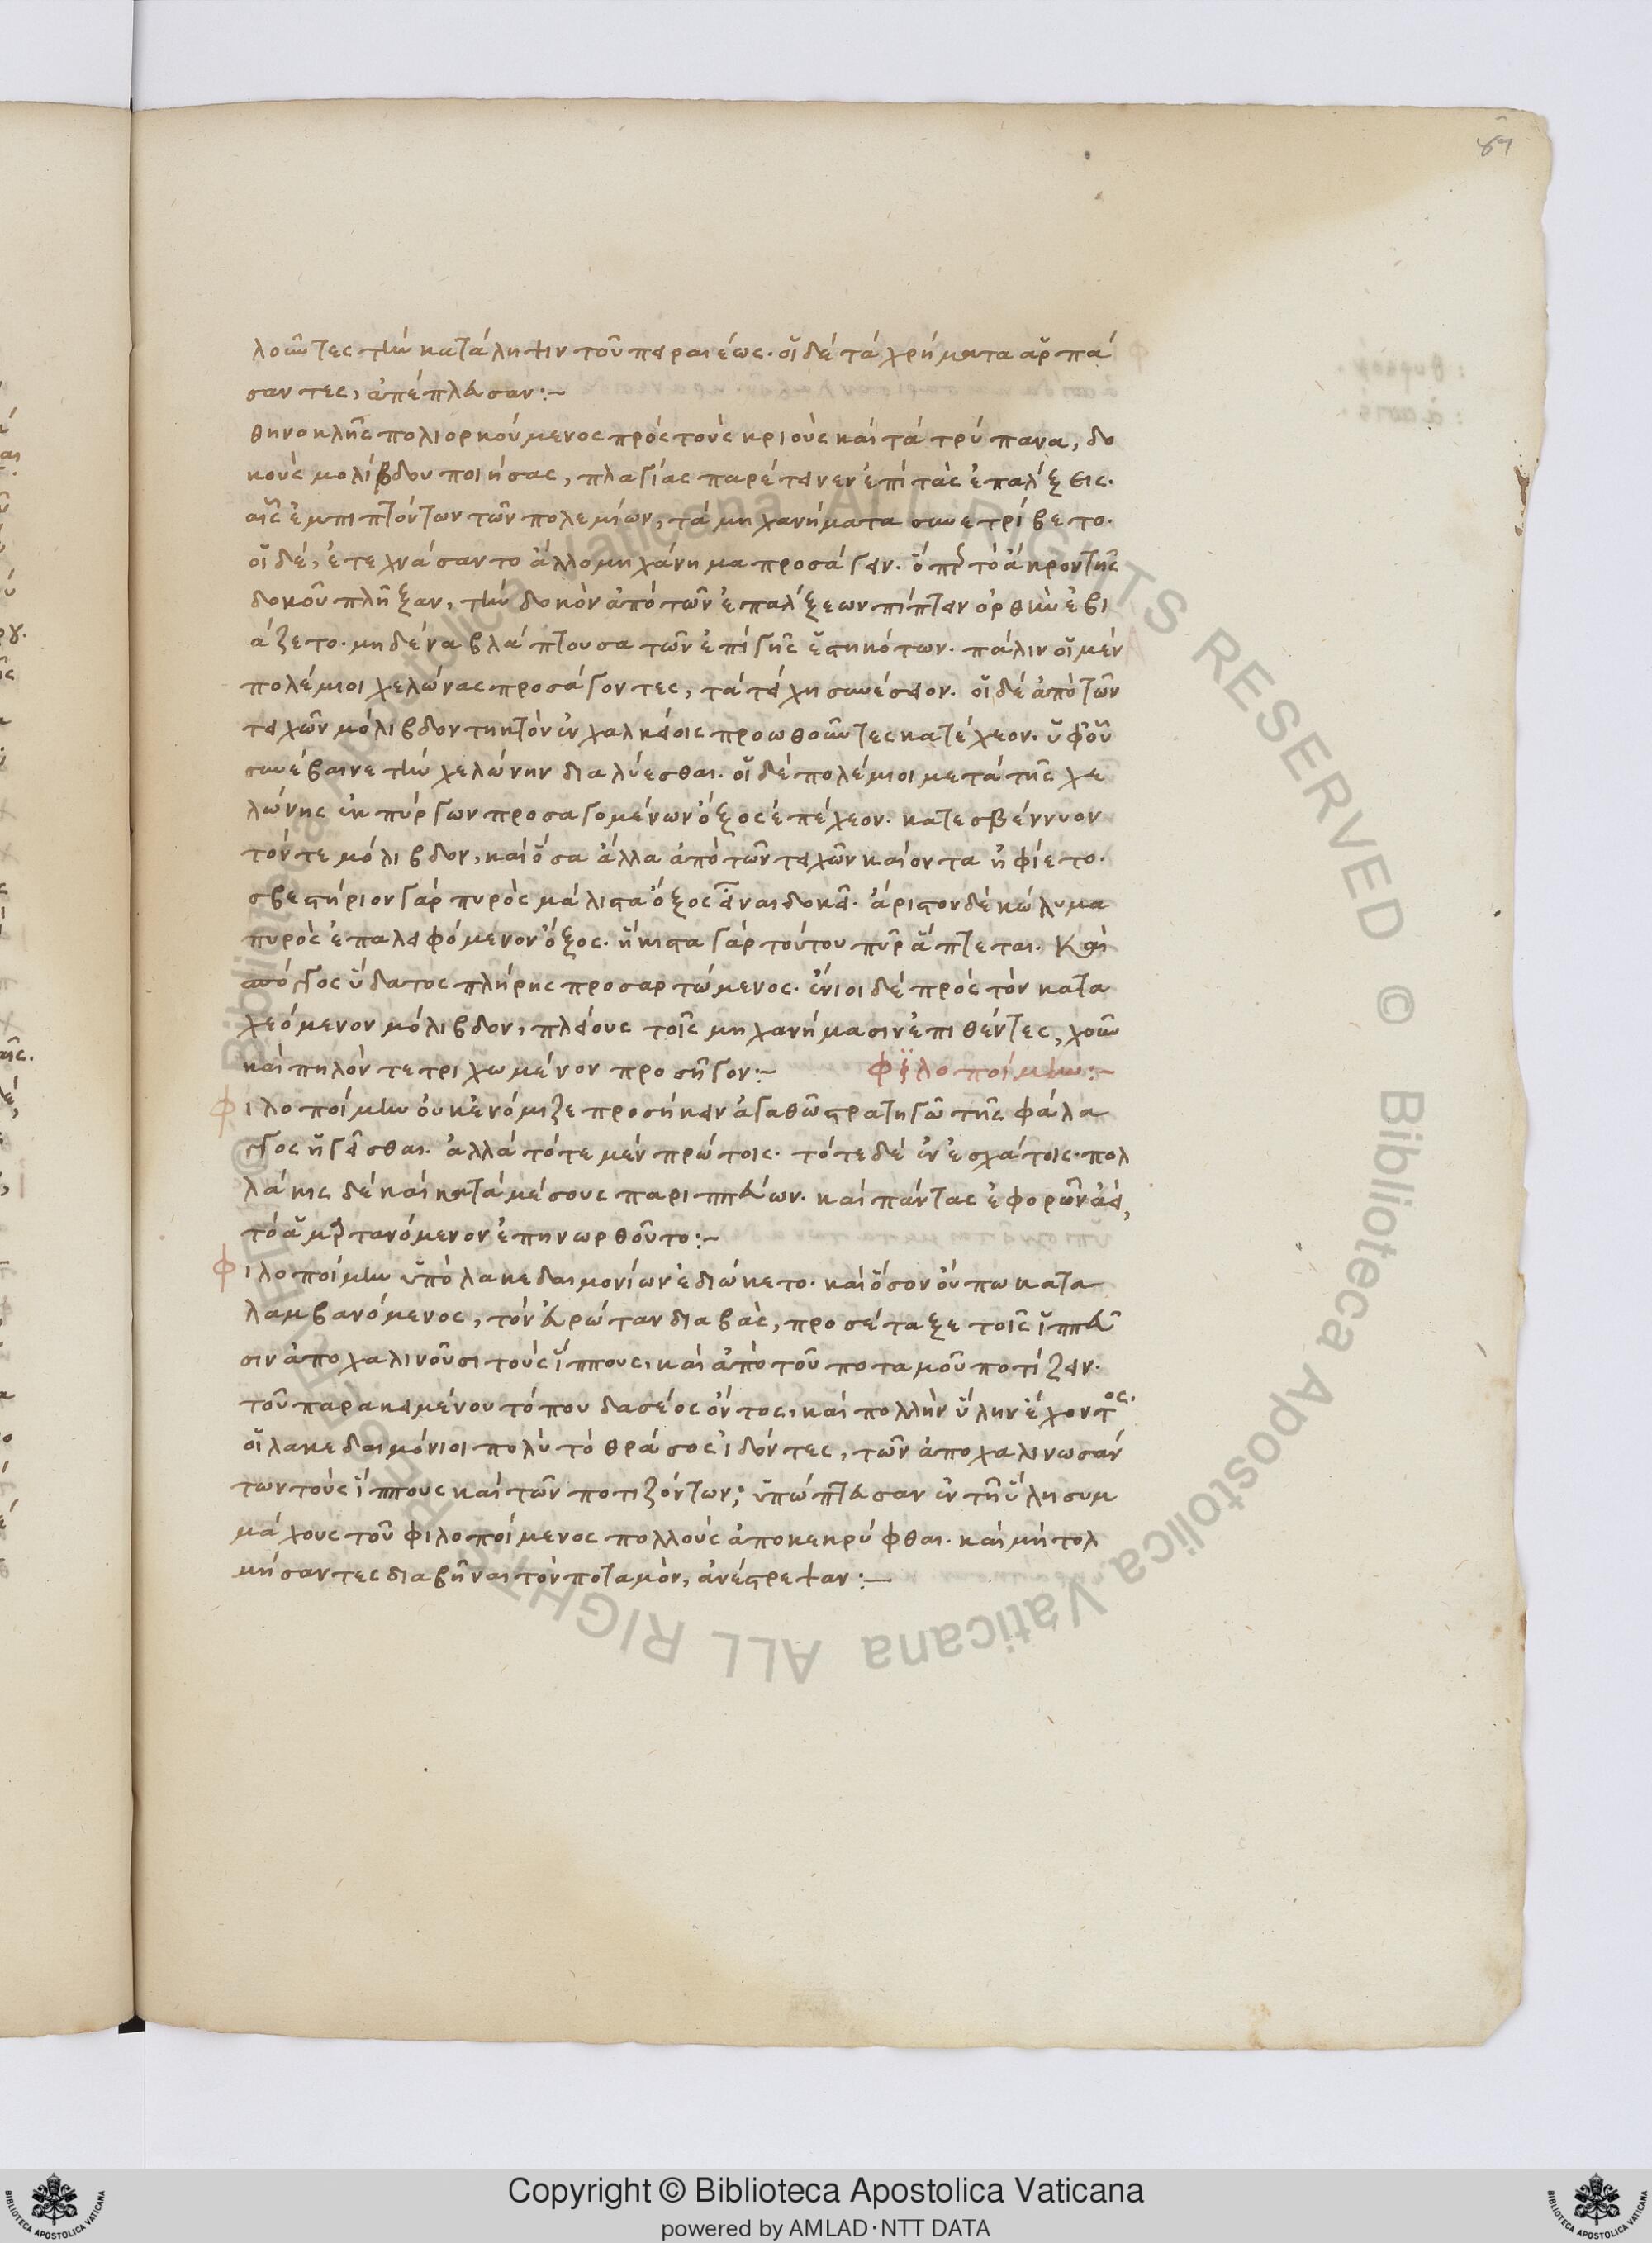 87
λοῦντες τὴν κατάληψιν τοῦ πειραιέως. οἱ δὲ τὰ χρήματα ἁρπά
σαντες, ἀπέπλευσαν:-
θηνοκλῆς πολιορκούμενος πρὸς τοὺς κριοὺς καὶ τὰ τρύπανα, δο
κοὺς μολίβδου ποιήσας, πλαγίας παρέτεινεν ἐπὶ τὰς ἐπαλξεις.
αἷς ἐμπιπτόντων τῶν πολεμίων, τὰ μηχανήματα συνετρίβετο.
οἱ δὲ, ἐτεχνάσαντο ἄλλο μηχάνημα προσάγειν. ὅπερ τὸ ἄκρον τῆς
δοκοῦ πλῆξαν, τὴν δοκὸν ἀπὸ τῶν ἐπαλξεων πίπτειν ὀρθὴν ἐβι
άζετο. μηδένα βλάπτουσα τῶν ἐπὶ γῆς ἑστηκότων. πάλιν οἱ μὲν
πολέμιοι χελώνας προσάγοντες, τὰ τείχη συνέσειον. οἱ δὲ ἀπὸ τῶν
τειχῶν μόλιβδον τηκτὸν ἐν χαλκείοις προωθοῦντες κατέχεον. ὑφ' οὗ
συνέβαινε τὴν χελώνην διαλύεσθαι. οἱ δὲ πολέμιοι μετὰ τῆς χε
λώνης ἐκ πύργων προσαγομένων ὄξος ἐπέχεον. κατεσβέννυον
τόν τε μόλιβδον, καὶ ὅσα ἄλλα ἀπὸ τῶν τειχῶν καίοντα ἠφίετο.
σβεστήριον γὰρ πυρὸς μάλιστα ὄξος εἶναι δοκεῖ. ἄριστον δὲ κώλυμα
πυρὸς ἐπαλειφόμενον ὄξος. ἥκιστα γὰρ τούτου πῦρ ἅπτεται. Καὶ
σπόγγος ὕδατος πλήρης προσαρτώμενος. ἔνιοι δὲ πρὸς τὸν κατα
χεόμενον μόλιβδον, πλείους τοῖς μηχανήμασιν ἐπιθέντες, χοῦν
καὶ πηλὸν τετριχωμένον προσῆγον:- Φιλοποίμην:-
Φιλοποίμην οὐκ ἐνόμιζε προσήκειν ἀγαθῶ στρατηγῶ τῆς φάλα
γγος ἡγεῖσθαι. ἀλλὰ τότε μὲν πρώτοις. τότε δὲ ἐν ἐσχάτοις. πολ
λάκις δὲ καὶ κατὰ μέσους παριππεύων. καὶ πάντας ἐφορῶν ἀεὶ,
τὸ ἁμαρτανόμενον ἐπηνωρθοῦντο:-
Φιλοποίμην ὑπὸ λακεδαιμονίων ἐδιώκετο. καὶ ὅσον οὔπω κατα
λαμβανόμενος, τὸν εὐρώταν διαβὰς, προσέταξε τοῖς ἱππεῦ
σιν ἀποχαλινοῦσι τοὺς ἵππους, καὶ ἀπὸ τοῦ ποταμοῦ ποτίζειν.
τοῦ παρακειμένου τόπου δασέος ὄντος, καὶ πολλὴν ὕλην ἔχοντος.
οἱ λακεδαιμόνιοι πολὺ τὸ θράσος ἰδόντες, τῶν ἀποχαλινωσάν
των τοὺς ἵππους καὶ τῶν ποτιζόντων; ὑπώπτευσαν ἐν τῆ ὕλη συμ
μάχους τοῦ φιλοποίμενος πολλοὺς ἀποκεκρύφθαι. καὶ μὴ τολ
μήσαντες διαβῆναι τὸν ποταμὸν, ἀνέστρεψαν:-
© Biblioteca Apostolica Vaticana ALL RIGHTS RESERVED
© Biblioteca Apostolica Vaticana ALL RIGHTS RESERVED
BIBLIOTECA APOSTOLICA VATICANA
Copyright © Biblioteca Apostolica Vaticana
powered by AMLAD·NTT DATA
BIBLIOTECA APOSTOLICA VATICANA